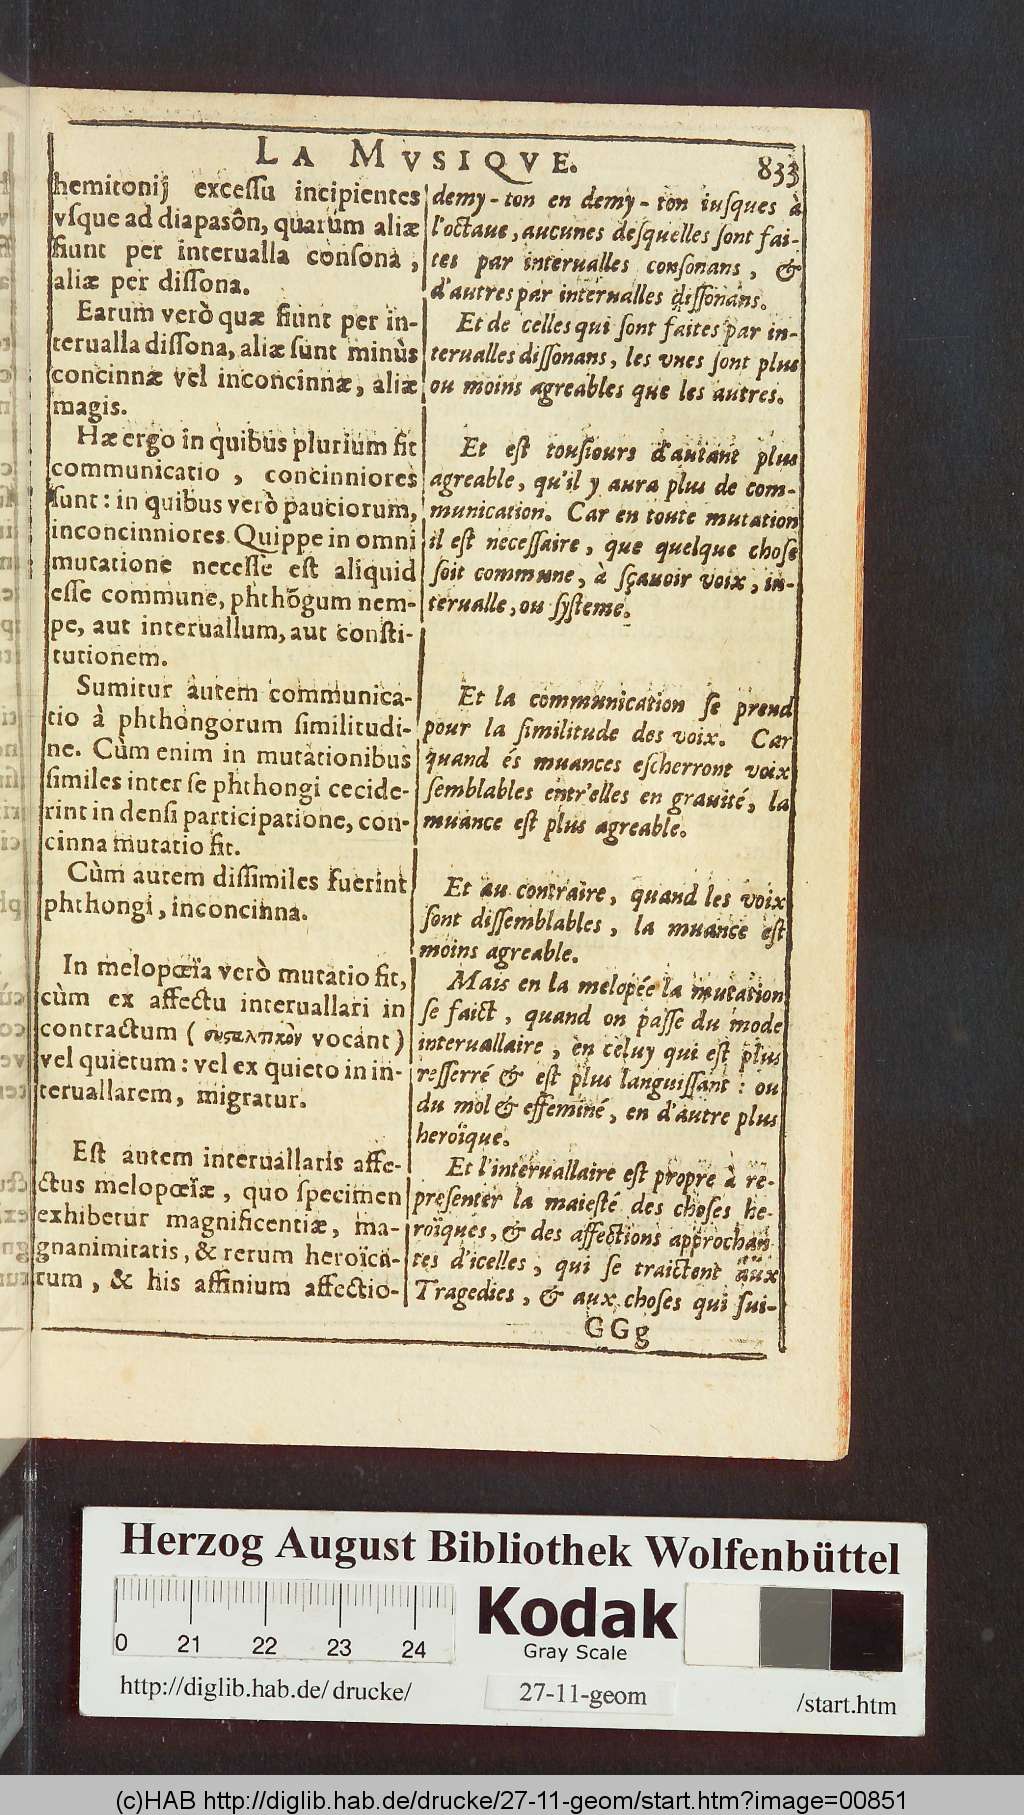 LA MVSIQVE. 833
hemitonij excessu incipientes
vsque ad diapasôn, quarum aliæ
fiunt per interualla consona,
aliæ per dissona.
Earum verò quæ fiunt per in-
terualla dissona, aliæ sunt minùs
concinnæ vel inconcinnæ, aliæ
magis.
Hæ ergo in quibus plurium fit
communicatio, concinniores
sunt: in quibus verò pauciorum,
inconcinniores. Quippe in omni
mutatione necesse est aliquid
esse commune, phthõgum nem-
pe, aut interuallum, aut consti-
tutionem.
Sumitur autem communica-
tio à phthongorum similitudi-
ne. Cùm enim in mutationibus
similes inter se phthongi cecide-
rint in densi participatione, con-
cinna mutatio fit.
Cùm autem dissimiles fuerint
phthongi, inconcinna.
In melopœïa verò mutatio fit,
cùm ex affectu interuallari in
contractum (συσταλτικὸν vocant)
vel quietum: vel ex quieto in in-
teruallarem, migratur.
Est autem interuallaris affe-
ctus melopœïæ, quo specimen
exhibetur magnificentiæ, ma-
gnanimitatis, & rerum heroïca-
rum, & his affinium affectio-
demy-ton en demy-ton iusques à
l'octaue, aucunes desquelles sont fai-
tes par interualles consonans, &
d'autres par interualles dissonans.
Et de celles qui sont faites par in-
terualles dissonans, les vnes sont plus
ou moins agreables que les autres.
Et est tousiours d'autant plus
agreable, qu'il y aura plus de com-
munication. Car en toute mutation
il est necessaire, que quelque chose
soit commune, à sçauoir voix, in-
terualle, ou systeme.
Et la communication se prend
pour la similitude des voix. Car
quand és muances escherront voix
semblables entr'elles en grauité, la
muance est plus agreable.
Et au contraire, quand les voix
sont dissemblables, la muance est
moins agreable.
Mais en la melopée la mutation
se faict, quand on passe du mode
interuallaire, en celuy qui est plus
resserré & est plus languissant: ou
du mol & effeminé, en d'autre plus
heroïque.
Et l'interuallaire est propre à re-
presenter la maiesté des choses he-
roïques, & des affections approchan-
tes d'icelles, qui se traictent aux
Tragedies, & aux choses qui sui-
GGg
Herzog August Bibliothek Wolfenbüttel
0 21 22 23 24
Kodak
Gray Scale
http://diglib.hab.de/drucke/ 27-11-geom /start.htm
(c)HAB http://diglib.hab.de/drucke/27-11-geom/start.htm?image=00851